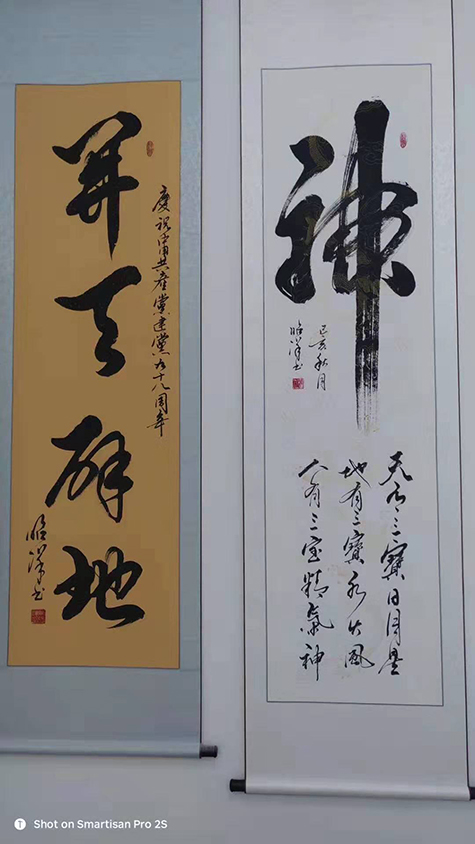 神
己亥秋月
昭洋书
天有三寶日月星
地有三寶水火風
人有三寶精氣神
慶祝中國共產黨建黨九十八周年
開天辟地
昭洋书
Shot on Smartisan Pro 2S